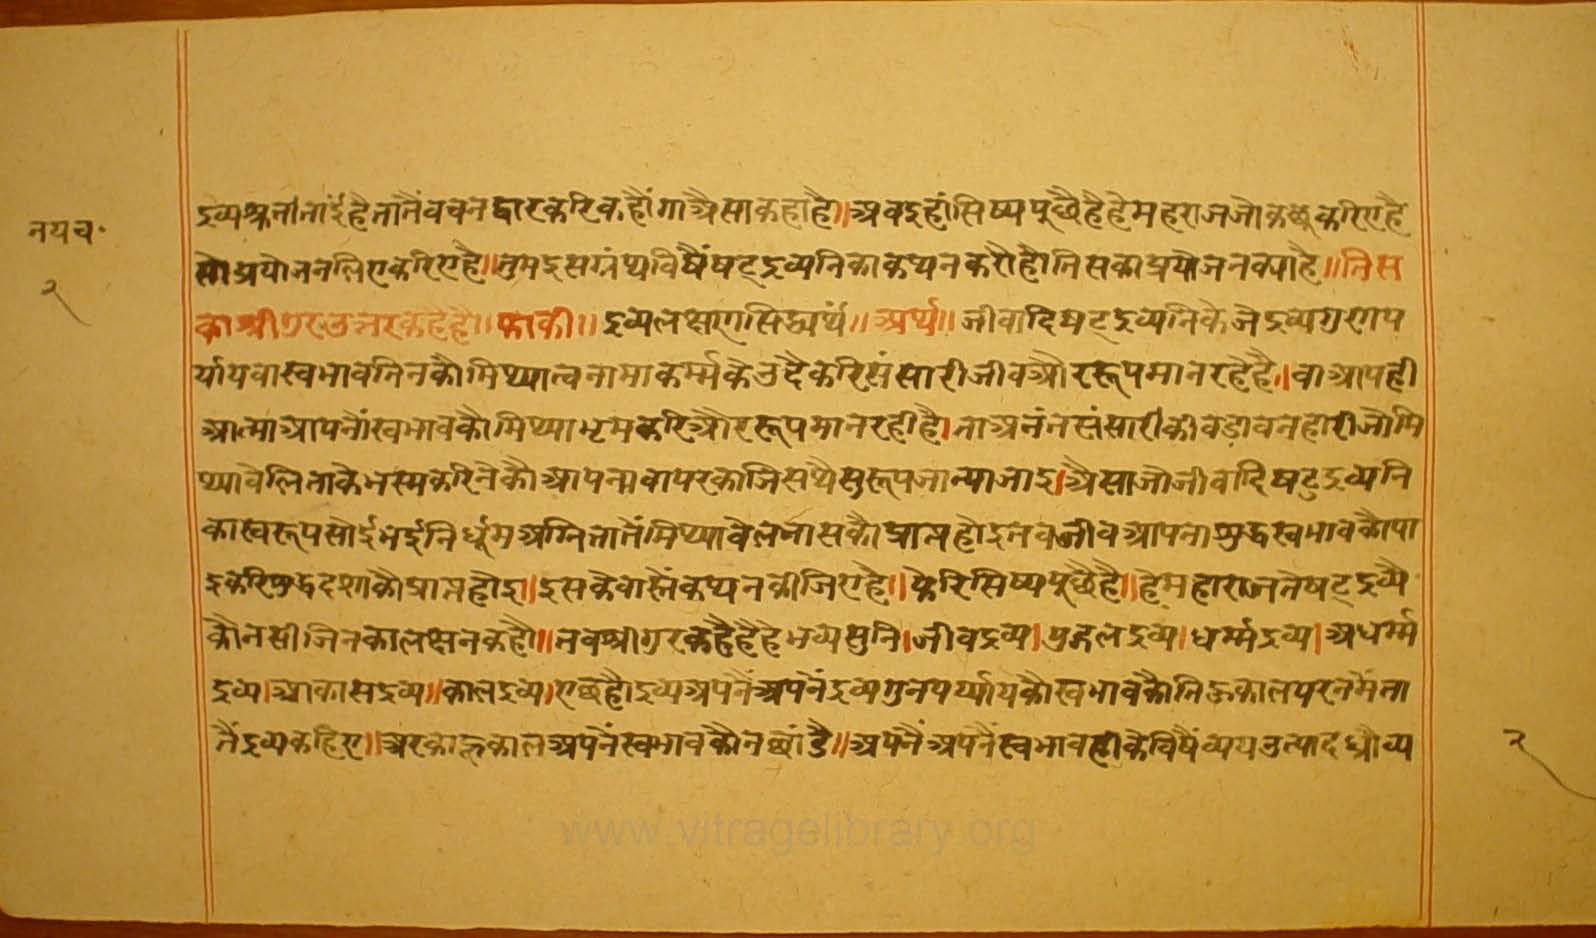 नयच॰
२
द्रव्यश्रुतीतांईहै तातैंवचनद्वारकरिकहौंगा अैसाकहाहै॥ अबइहांसिष्यपूछैहै हेमहराजजोकछूकरिएहै
सोप्रयोजनलिएकरिएहै॥ तुमइसग्रंथविषैंषट्द्रव्यनिकाकथनकरौहौ तिसकाप्रयोजनक्याहै॥ तिस
काश्रीगुरउत्तरकहेहै॥ फाकी॥ द्रव्यलक्षणसिद्ध्यर्थं॥ अर्थ॥ जीवादिषट्द्रव्यनिकेजेद्रव्यगुणप
र्यायवास्वभावतिनकौमिथ्यात्वनामाकर्म्मकेउदैकरिसंसारीजीवऔररूपमानरहेहै॥ वाआपही
आत्माआपनौंस्वभावकौमिथ्याभ्रमकरिऔररूपमानरहीहै। ताअनंनसंसारीकीबडावनहारीजोमि
थ्यावेलिताकेभस्मकरिनेकौआपन्मवापरकोजिसथैसुरूपजान्याजाइ। अैसाजोजीवादिषट्द्रव्यनि
कास्वरूपसोईभईनिर्धूमअग्नितातैंमिथ्यावेलनासकौप्राप्तहोइ तबजीवआपनाशुद्धस्वभावकौपा
इकरिशुद्धदशाकौप्राप्तहोइ॥ इसकेवास्तैंकथनकीजिएहै॥ फेरिसिष्यपूछैहै॥ हेमहाराजतेषट्द्रव्यै
कौनसीतिनकालक्षनकहौ॥ तबश्रीगुरकहैहै हेभव्यसुनि। जीवद्रव्य। पुद्गलद्रव्य। धर्म्मद्रव्य। अधर्म्म
द्रव्य। आकासद्रव्य॥ कालद्रव्य। एछहौद्रव्यअपनैंअपनैंद्रव्यगुनपर्य्यायकौस्वभावकौतिहूकालपरनमैंता
तैंद्रव्यकहिए॥ अरकाहूकालअपनैंस्वभावकौनछांडै॥ अपनैंअपनैंस्वभावहीकेविषैंव्ययउत्पादध्रौव्य
२
www.vitragelibrary.org